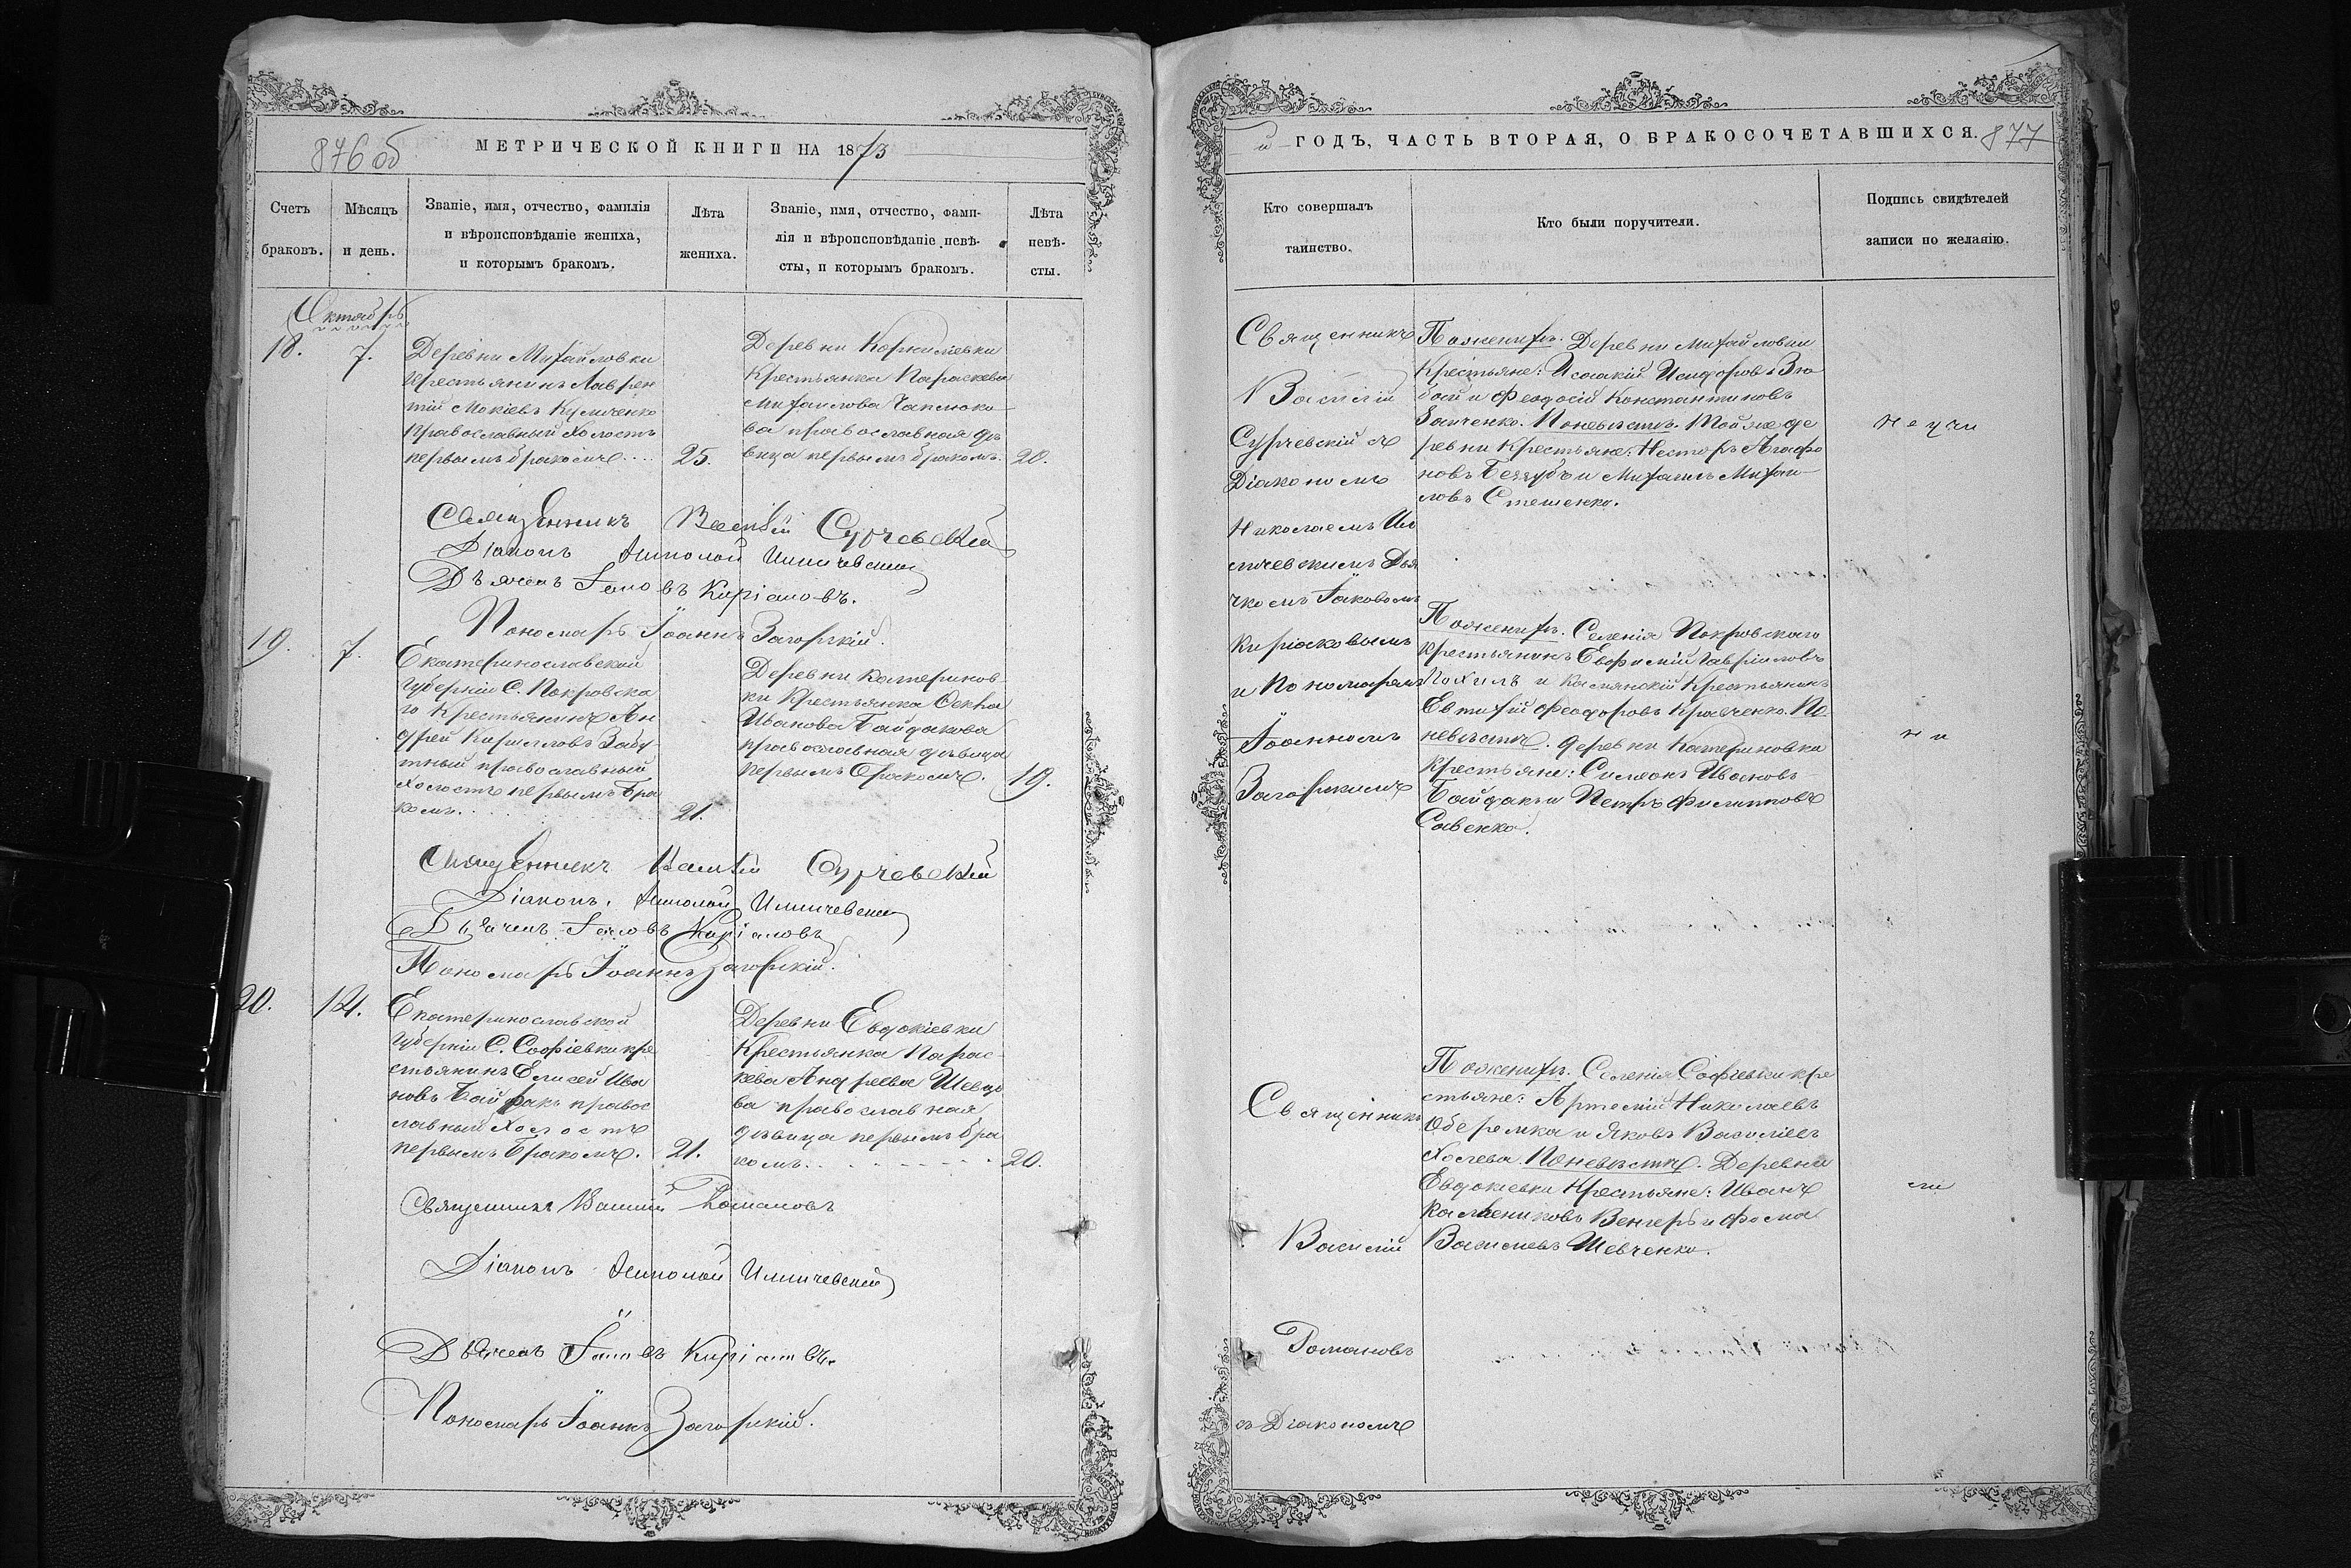 876 об
МЕТРИЧЕСКОЙ КНИГИ НА 1873
Счетъ
браковъ.
Мѣсяцъ
и день.
Званіе, имя, отчество, фамилія
и вѣроисповѣданіе жениха,
и которымъ бракомъ.
Лѣта
жениха.
Званіе, имя, отчество, фами-
лія и вѣроисповѣданіе невѣ-
сты, и которымъ бракомъ.
Лѣта
невѣ-
сты.
Октябрь
18.
7.
Деревни Михайловки
Крестьянинъ Лаврен
тій Мокіевъ Кумченко
Православный Холостъ
первымъ бракомъ....
25.
Деревни Корнилiевки
Крестьянка Параскева
Михаилова Чаплюко
ва православная дѣ
вица первымъ бракомъ.
20.
Священникъ Василій Сурчевскій
Діаконъ Николай Илличевскій
Дьячекъ Іаковъ Киріаковъ.
Пономарь Іоаннъ Загорскій.
19.
7.
Екатеринославской
Губерніи С. Покровска
го Крестьянинъ Ан
дрей Кирилловъ Забу-
тный православный
Холостъ первымъ Бра
комъ....
21.
Деревни Катеринов-
ки Крестьянка Өекла
Иванова Байдакова
православная дѣвица
первымъ бракомъ.
19.
Священникъ Василій Сурчевскій
Діаконъ. Николай Илличевскій
Дьячекъ Іаковъ Киріаковъ
Пономарь Іоаннъ Загорскій.
20.
14.
Екатеринославской
Губерніи С. Софіевки кре
стьянинъ Елисей Ива
новъ Байдакъ правос
лавный Холостъ
первымъ Бракомъ.
21.
Деревни Евдокіевки
Крестьянка Парас-
кева Андреева Шевцо
ва православная
дѣвица первымъ бра
комъ........
20.
Священникъ Василій Романовъ
Діаконъ Николай Илличевскій
Дьячекъ Іаковъ Киріаковъ.
Пономарь Іоаннъ Загорскій.
й ГОДЪ, ЧАСТЬ ВТОРАЯ, О БРАКОСОЧЕТАВШИХСЯ.
877
Кто совершалъ
таинство.
Кто были поручители.
Подпись свидѣтелей
записи по желанію.
Священникъ
Василій
Сурчевскій съ
Діакономъ
Николаемъ Ил
личевскимъ Дья
чкомъ Іаковомъ
Киріаковымъ
и Пономаремъ
Іоанномъ
Загорскимъ
По женихѣ. Деревни Михайловки
Крестьяне: Исаакій Исидоровъ
и Феодосій Константиновъ
Заиченко. По невѣстѣ. Той же де
ревни Крестьяне: Несторъ Агафо
новъ Беззубъ и Михаилъ Михаи-
ловъ Стешенко.
По женихѣ. Селенія Покровскаго
крестьянинъ Евфимій Гавріиловъ
Похилъ и Камянскій Крестьянинъ
Евтихій Феодоровъ Кравченко. По
невѣстѣ. деревни Катериновки
Крестьяне: Симеонъ Ивановъ
Байдакъ и Петръ Филипповъ
Савенко.
ни
Священникъ
Василій
Романовъ
съ Діакономъ
По женихѣ. Селенія Софіевки кре
стьяне: Артемій Николаевъ
Оберемка и Яковъ Василіевъ
По невѣстѣ. Деревни
Евдокіевки Крестьяне: Иванъ
Венгеръ и Фома
Василіевъ Шевченко.